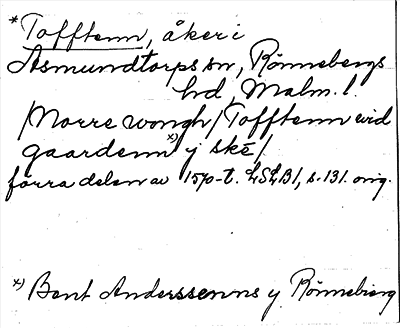 *Tofftenn, åker i
Asmundtorps sn, Rönnebergs
hd, Malm. l.
/Norre wongh/ Tofftenn wid
gaardenn x) j ske/
förra delen av 1570-t. LSLB1, s. 131. orig.
x) Bent Anderssenns y Rönneberg